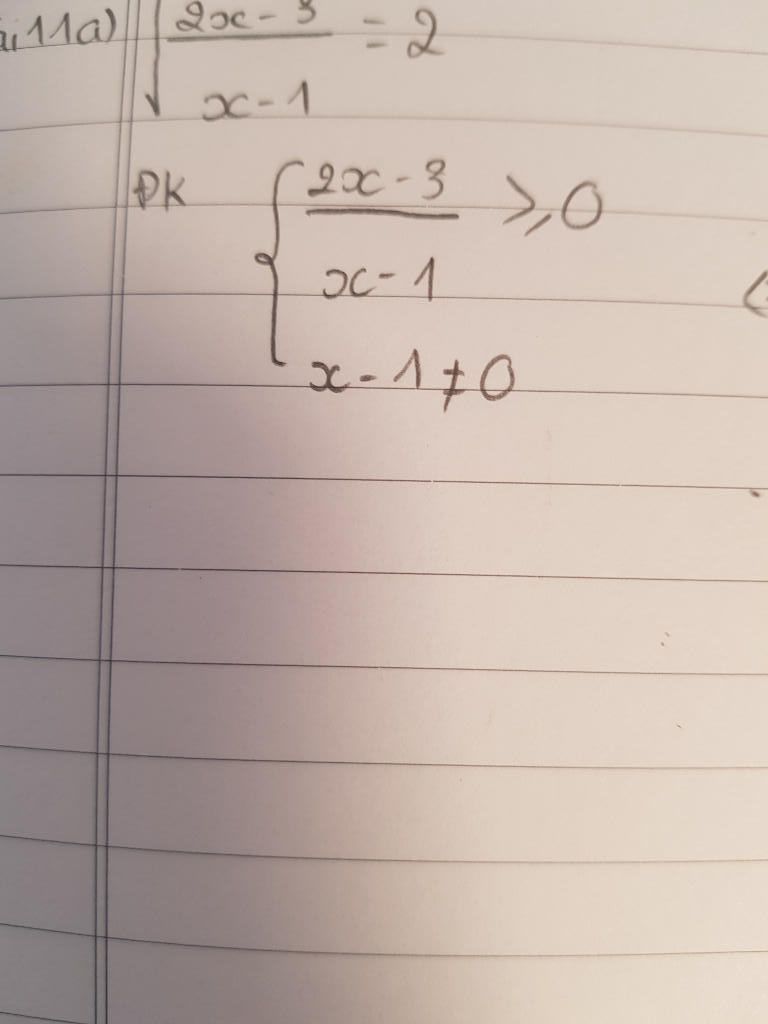 11a) √(2x - 3 / x - 1) = 2
ĐK { 2x - 3 / x - 1 ⩾ 0
x - 1 ≠ 0